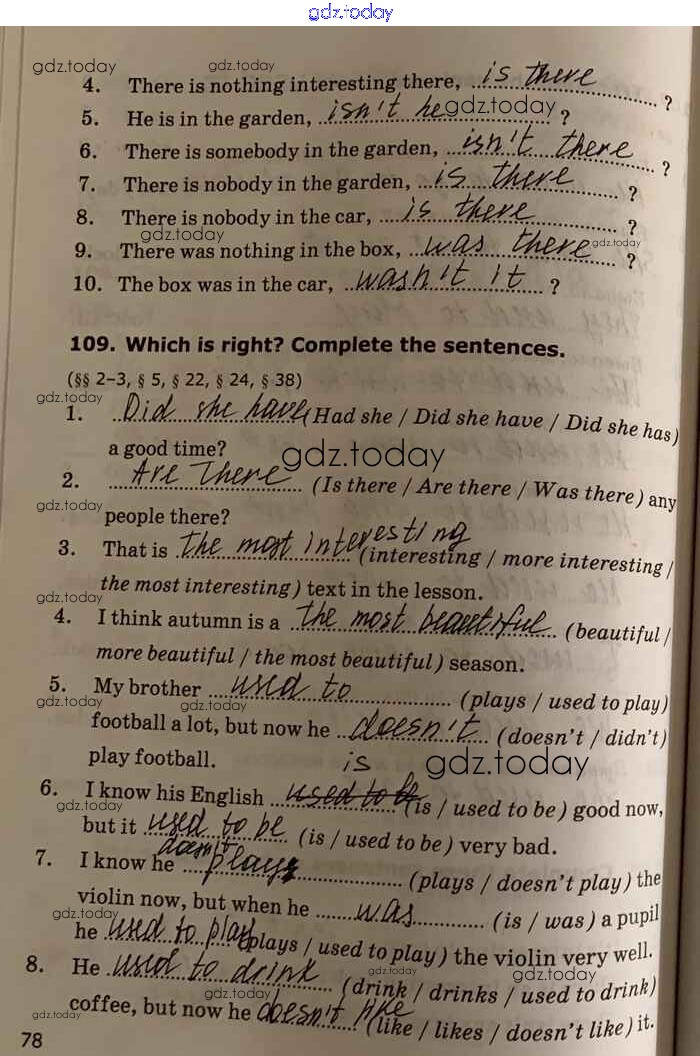 gdz.today
gdz.today gdz.today
4. There is nothing interesting there, is there ?
5. He is in the garden, isn't he gdz.today ?
6. There is somebody in the garden, isn't there ?
7. There is nobody in the garden, is there ?
8. There is nobody in the car, is there ?
gdz.today gdz.today
9. There was nothing in the box, was there ?
10. The box was in the car, wasn't it ?
109. Which is right? Complete the sentences.
(§§ 2–3, § 5, § 22, § 24, § 38)
gdz.today
1. Did she have (Had she / Did she have / Did she has)
a good time? gdz.today
2. Are There (Is there / Are there / Was there) any
gdz.today
people there?
3. That is the most interesting (interesting / more interesting /
the most interesting) text in the lesson.
gdz.today
4. I think autumn is a the most beautiful (beautiful /
more beautiful / the most beautiful) season.
5. My brother used to (plays / used to play)
gdz.today gdz.today
football a lot, but now he doesn't (doesn't / didn't)
play football. is gdz.today
6. I know his English used to be (is / used to be) good now,
gdz.today
but it used to be (is / used to be) very bad.
doesn't
7. I know he plays (plays / doesn't play) the
violin now, but when he was (is / was) a pupil
gdz.today
he used to play (plays / used to play) the violin very well.
8. He used to drink (drink / drinks / used to drink)
gdz.today gdz.today
gdz.today
coffee, but now he doesn't like (like / likes / doesn't like) it.
gdz.today
78